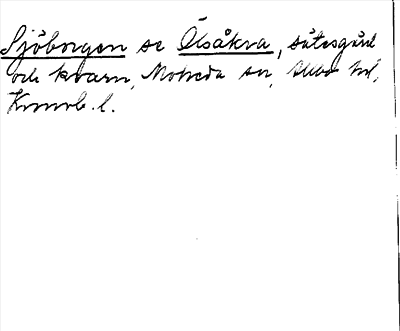 Sjöborgen se Ölsåkra, sätesgård
och kvarn, Moheda sn, Allbo hd,
Kronob. l.